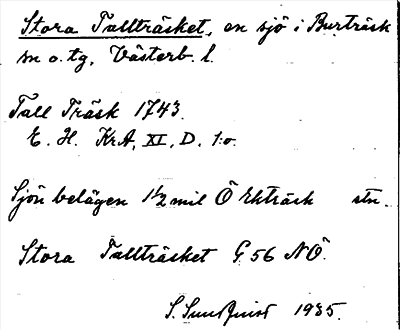 Stora Tallträsket, en sjö i Burträsk
sn o. tg, Västerb. l.
Tall Träsk 1743.
E. H. KrA, XI, D. 1:o.
Sjön belägen 1 1/2 mil Ö Ekträsk stn.
Stora Tallträsket G 56 NÖ.
S. Sundqvist 1935.